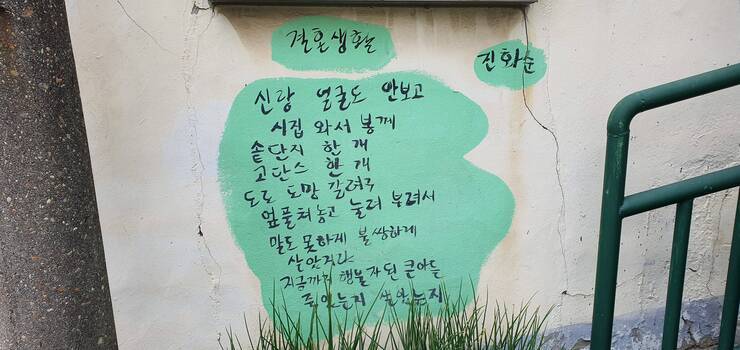 결혼생활
진화순
신랑 얼굴도 안보고
시집 와서 봉께
솥단지 한 개
고단스 한 개
도로 도망 갈려구
엎풀쳐놓고 눌러 부려서
말도 못하게 불쌍하게
살았지라
지금까지 행불자된 큰아들
죽었는지 살았는지